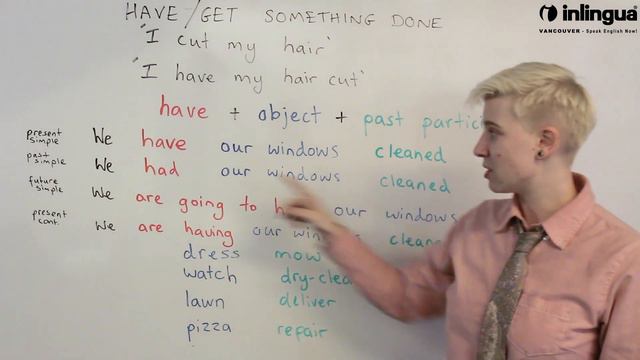 HAVE/GET SOMETHING DONE
inlingua®
VANCOUVER - Speak English Now!
'I cut my hair'
'I have my hair cut'
have + object + past
present simple We have our windows cleaned
past simple We had our windows cleaned
future simple We are going to our windows
present cont. We are having our
dress mow
watch
lawn deliver
pizza repair